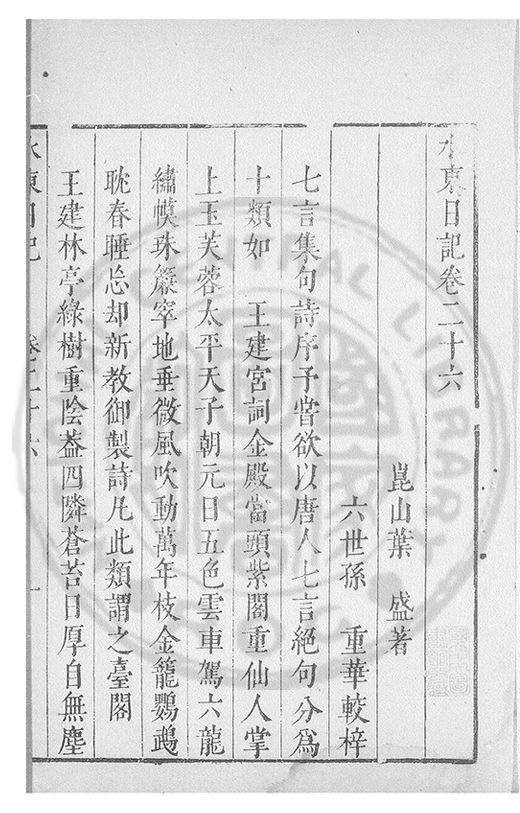 水東日記卷二十六
崑山葉　盛著
六世孫　重華較梓
七言集句詩序予嘗欲以唐人七言絕句分爲
十類如　王建宮詞金殿當頭紫閣重仙人掌
上玉芙蓉太平天子朝元日五色雲車駕六龍
繡幙珠簾窣地垂微風吹動萬年枝金籠鸚鵡
耽春睡忘却新教御製詩凡此類謂之臺閣
王建林亭綠樹重陰葢四隣蒼苔日厚自無塵
水東日記　卷二十六　一